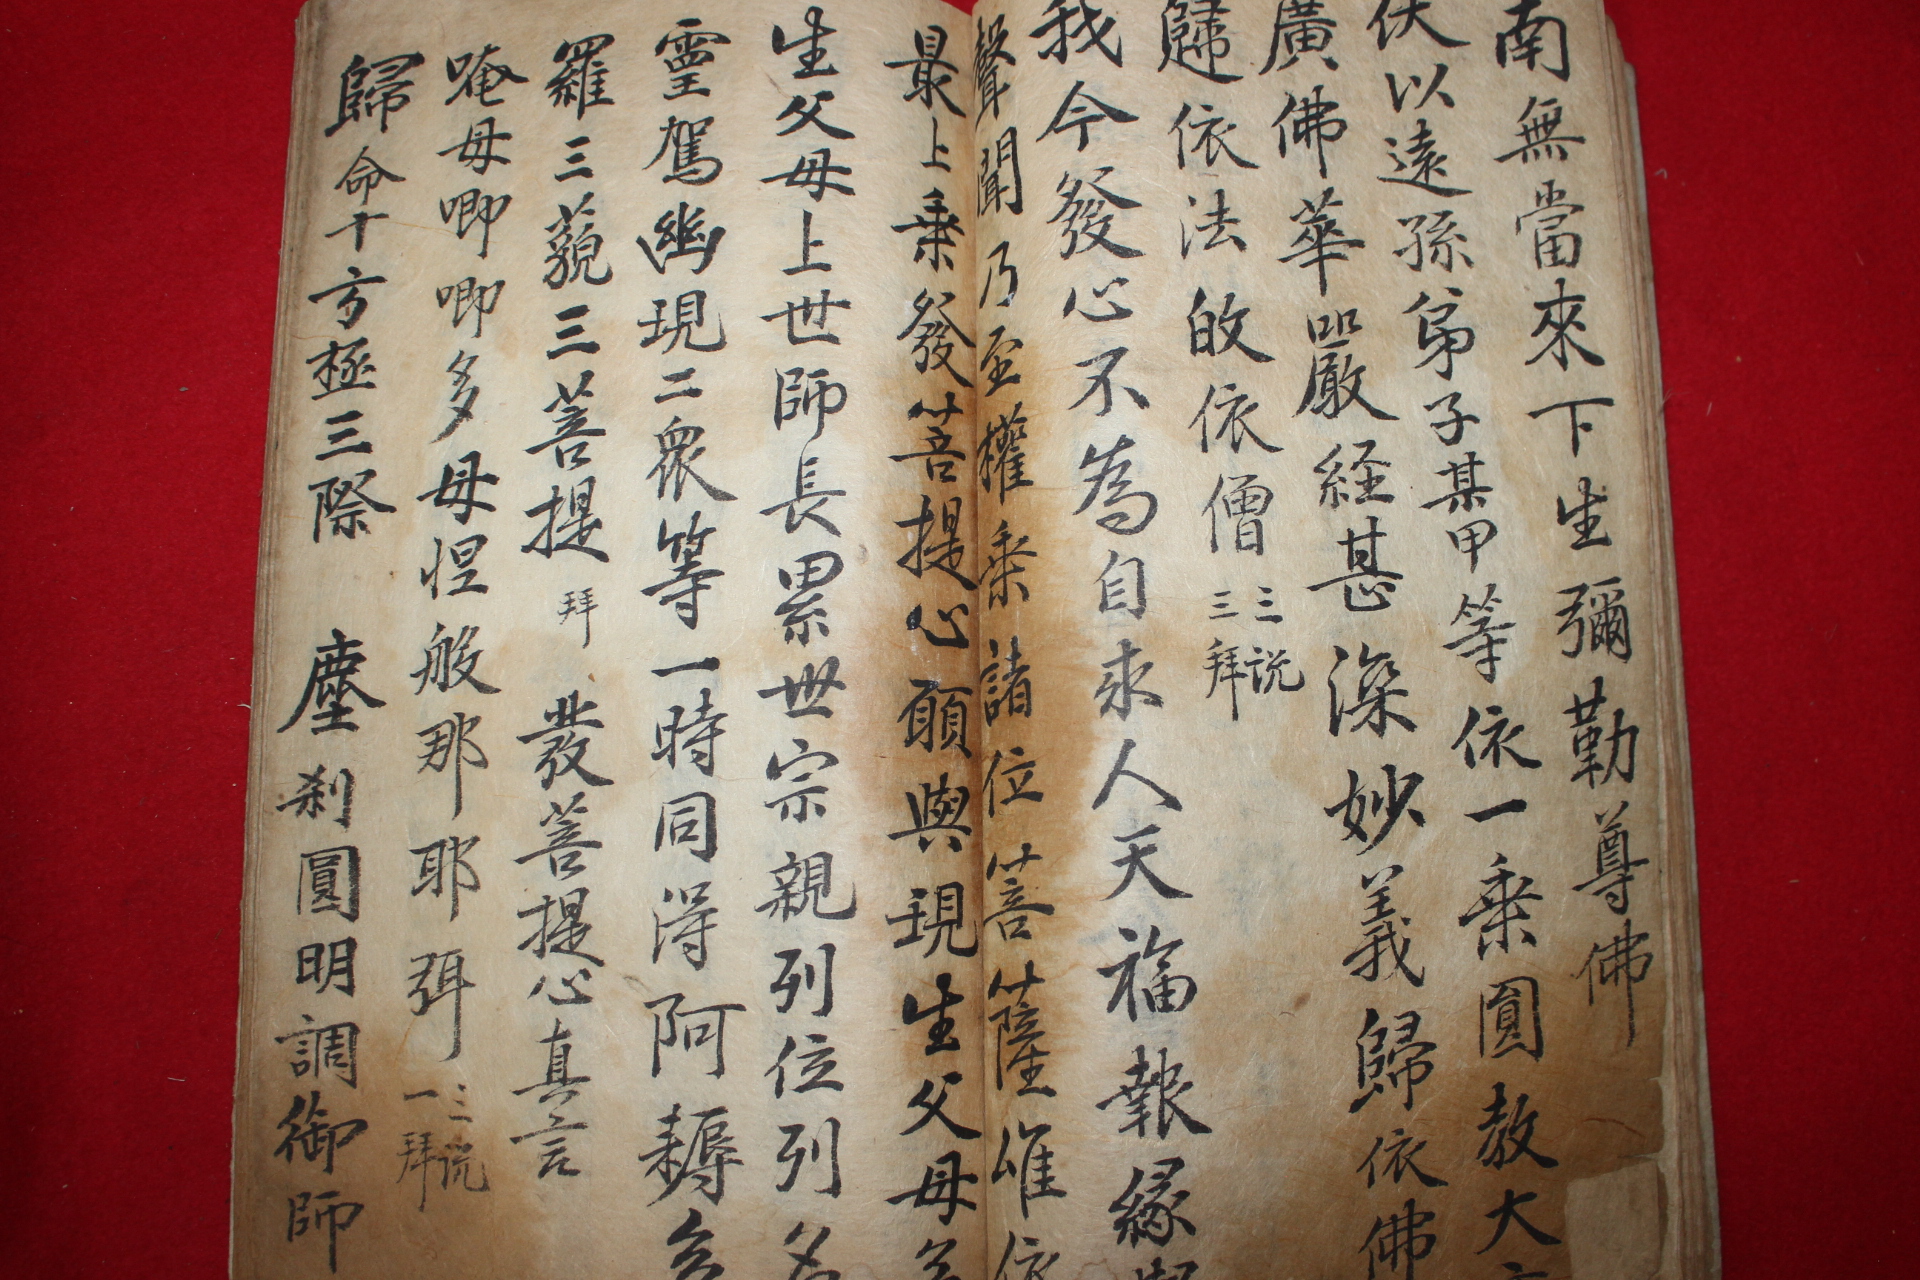 南無當來下生彌勒尊佛
伏以遠孫弟子某甲等依一乘圓教大方
廣佛華嚴経甚深妙義歸依佛
歸依法皈依僧三説三拜
我今發心不為自求人天福報緣覺
聲聞乃至權乘諸位菩薩唯依
最上乘發菩提心願與現生父母多
生父母上世師長累世宗親列位列名
靈駕幽現二衆等一時同淂阿耨多
羅三藐三菩提拜發菩提心真言
唵母唧唧多母怛般那耶弭三説一拜
歸命十方極三際塵刹圓明調御師